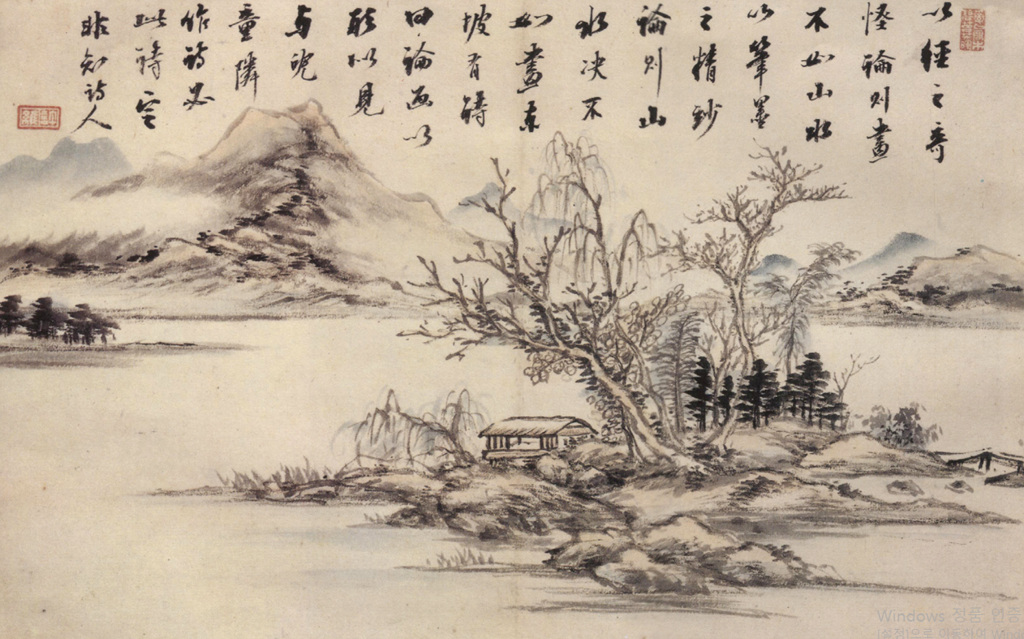 以徑之奇
怪論則畫
不如山水
以筆墨
之精妙
論則山
水決不
如畫東
坡有詩
曰論畫以
形似見
與兒
童隣
作詩必
此詩定
非知詩人
Windows 정품 인증
[설정]으로 이동하여